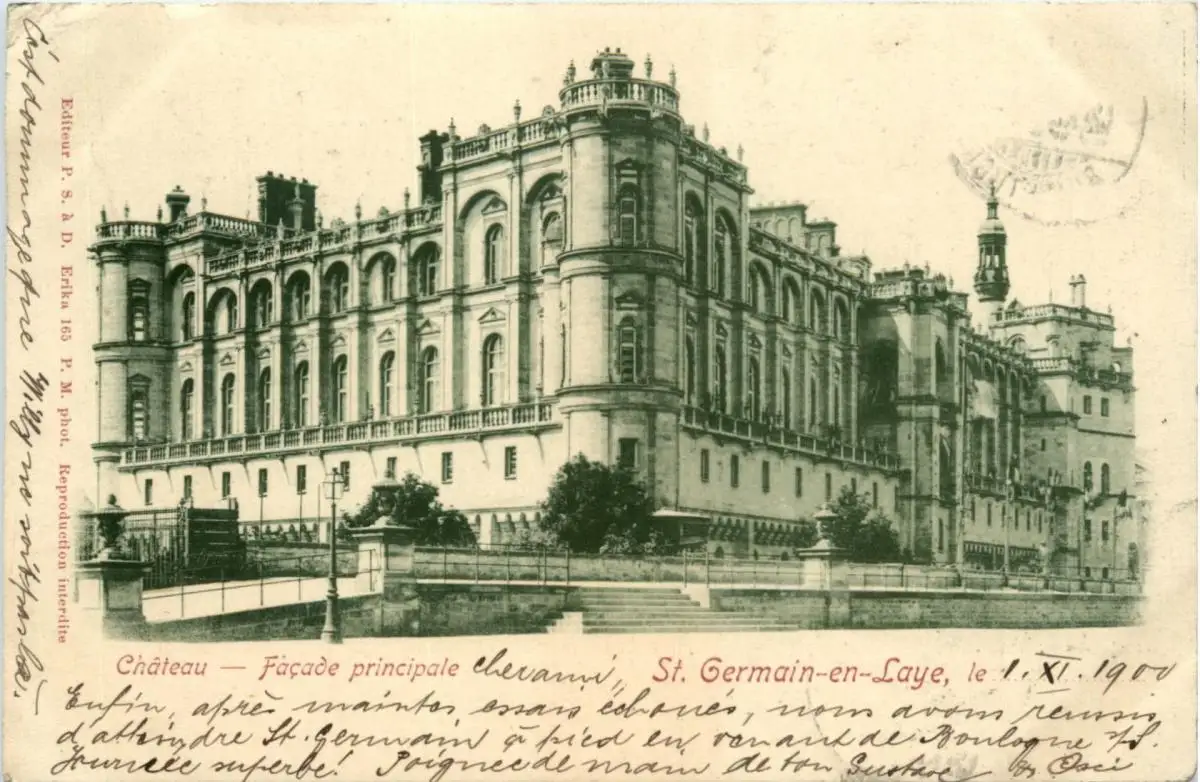 C'est dommage que Willy ne soit pas là.
Editeur P. S. à D. Erika 165 P. M. phot. Reproduction interdite
Château — Façade principale cher ami, St. Germain-en-Laye, le 1. XI. 1900
Enfin, après maintes essais échoués, nous avons réussis
d'atteindre St. Germain à pied en venant de Boulogne s/S.
Journée superbe! Poignée de main de ton Gustave